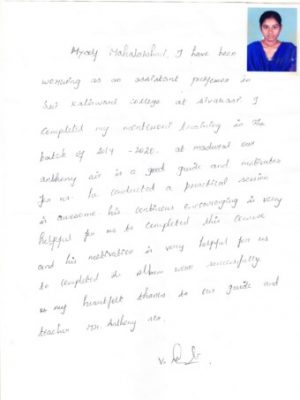 Myself Mahalakshmi, I have been
working as an assistant professor in
Sri Kaliswari college at sivakasi I
completed my montessori training in the
batch of 2019 - 2020. at madurai our
anthony sir is a good guide and motivates
for us. he conducted a practical session
is awesome. his continous encouraging is very
helpful for us to completed this course
and his motivation is very helpful for us
to completed album work successfully.
my heartfelt thanks to our guide and
teacher Mr. Anthony sir.
V.